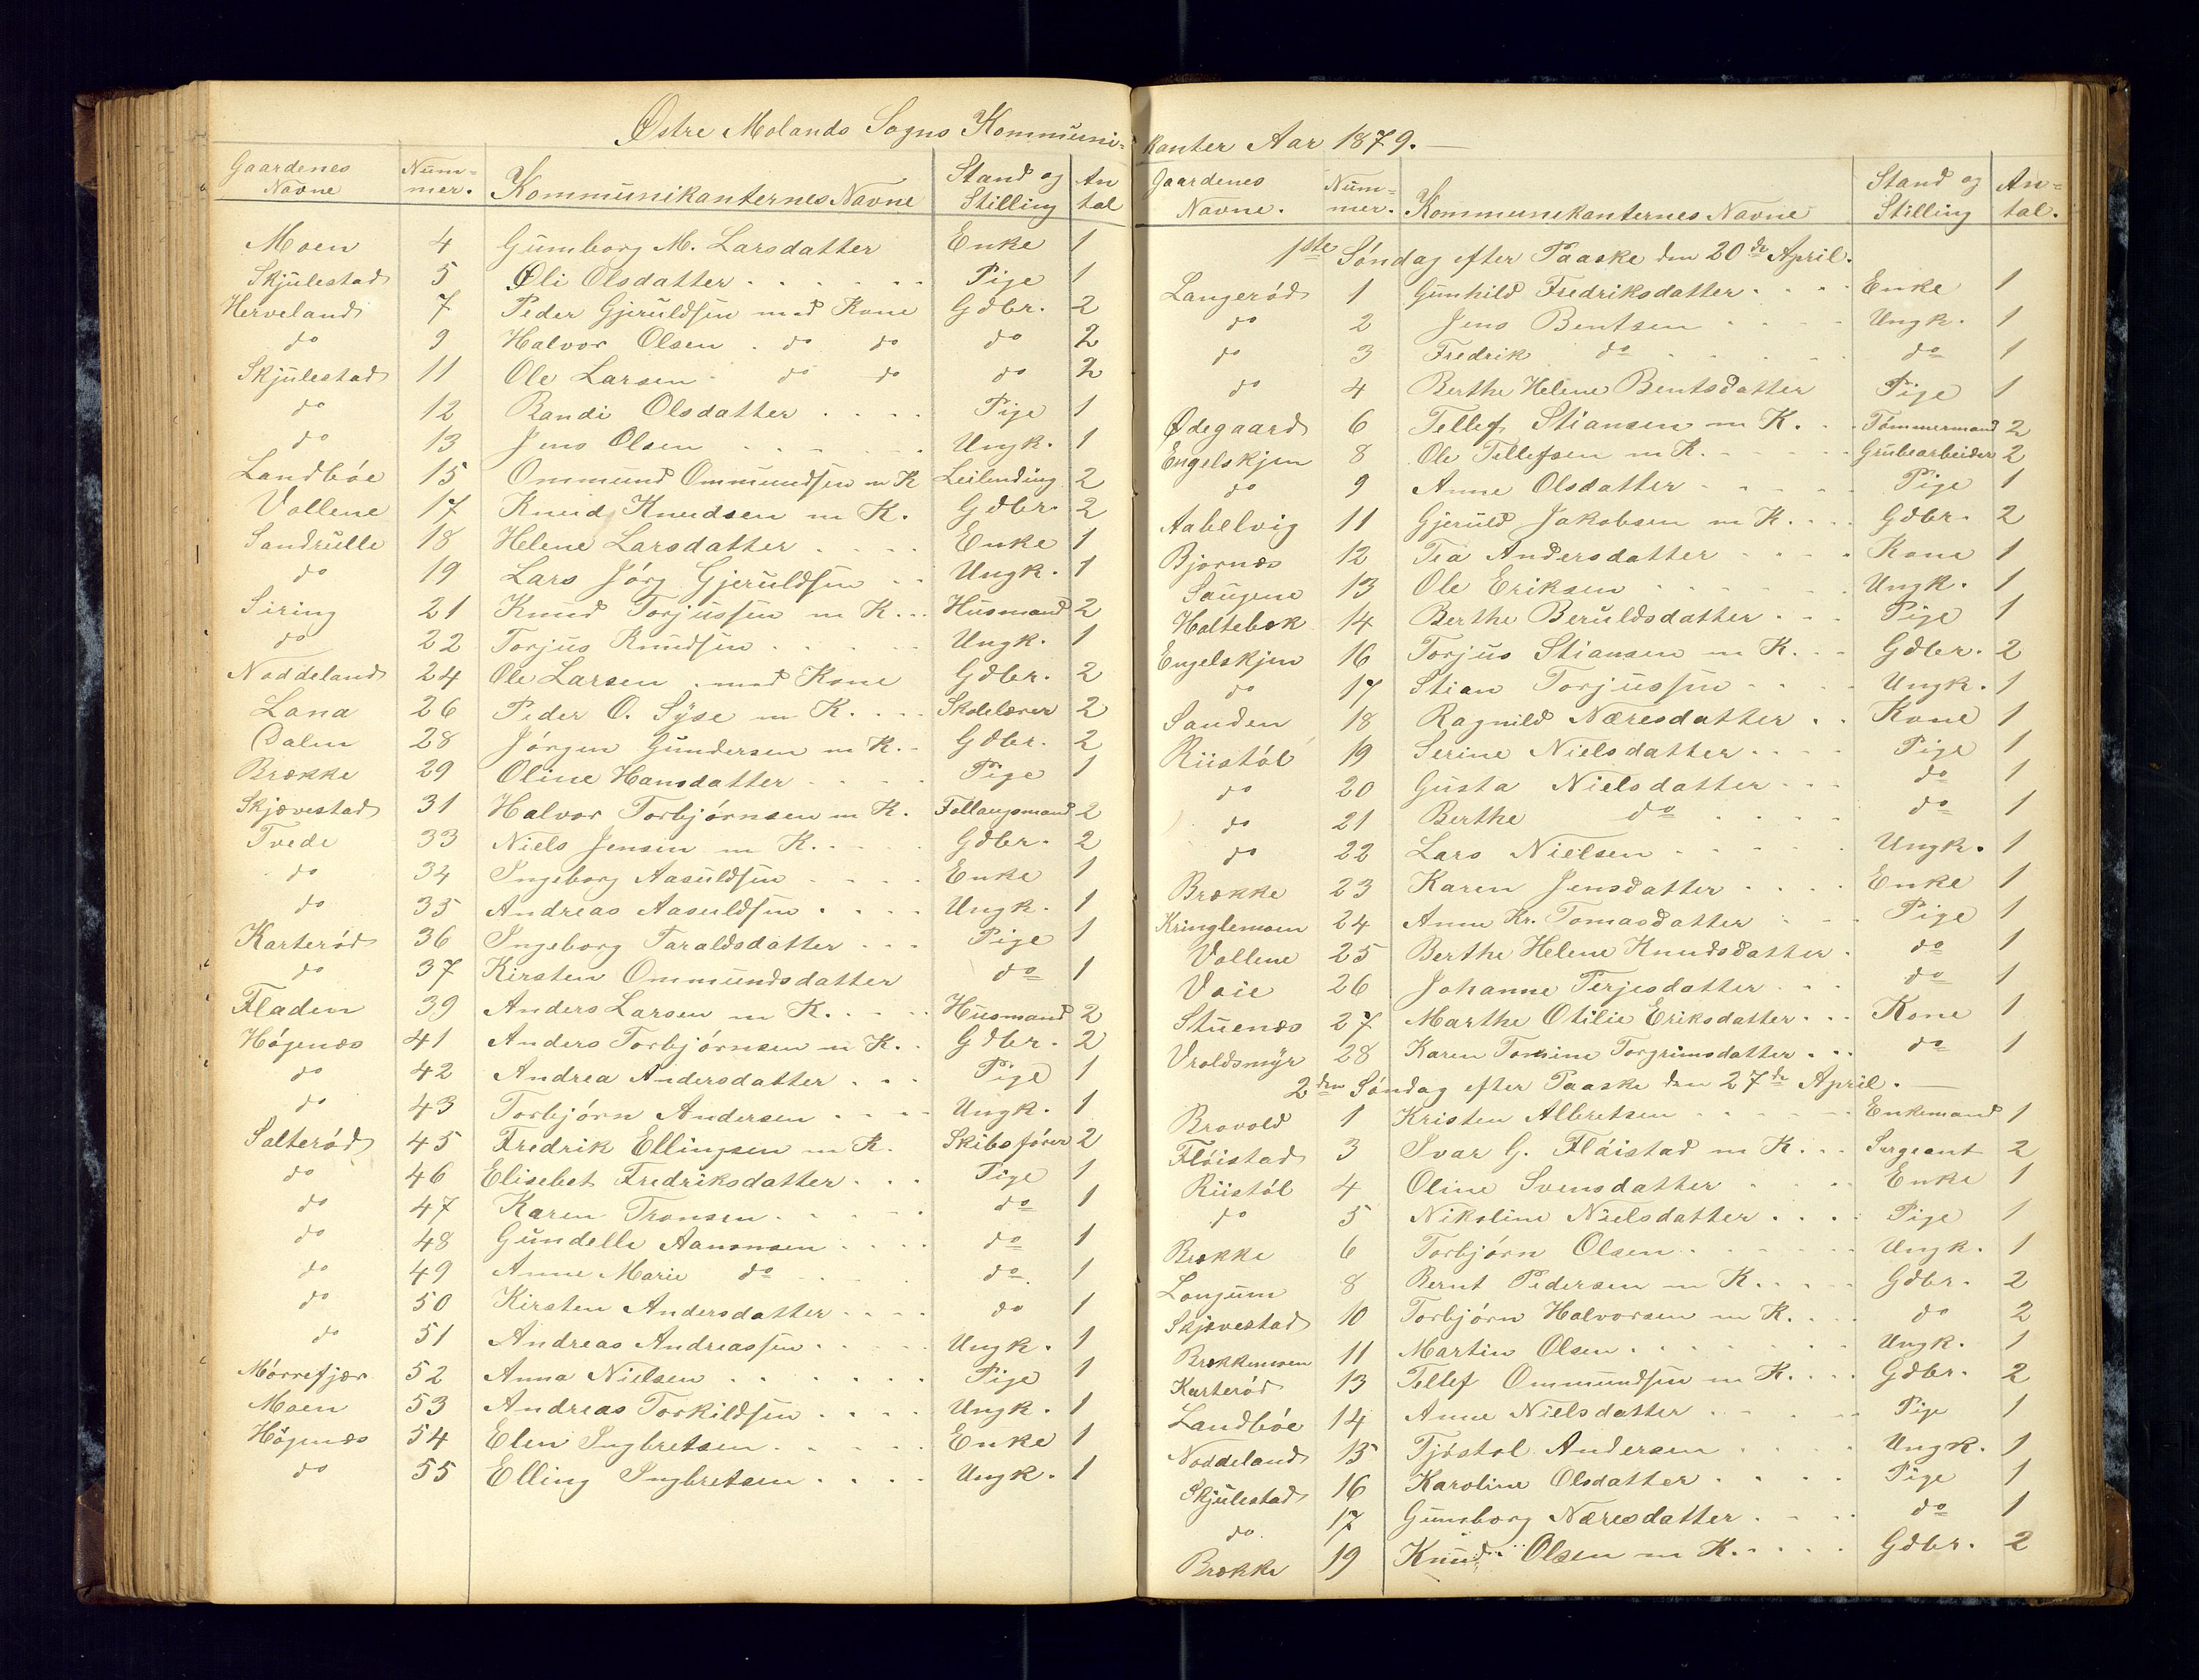 Østre Molands Sogns Kommuni-
Gaardenes Navne Num-mer. Kommunikanternes Navne Stand og Stilling An tal
Moen 4 Gunborg M. Larsdatter Enke 1
Skjulestad 5 Øli Olsdatter . . . . . . Pige 1
Herveland 7 Peder Gjeruldsen med Kone Gdbr. 2
do 9 Halvor Olsen . do do do 2
Skjulestad 11 Ole Larsen - do do do 2
do 12 Randi Olsdatter . . . . Pige 1
do 13 Jens Olsen . . . . . Ungk. 1
Landbøe 15 Ommund Ommundsen m K Leilending 2
Vollene 17 Knud Knudsen m K. Gdbr. 2
Sandrulle 18 Helene Larsdatter . . . . Enke 1
do 19 Lars Jørg. Gjeruldsen . . Ungk. 1
Siring 21 Knud Torjussen m K. . . Husmand 2
do 22 Torjus Knudsen . . . . . Ungk. 1
Noddeland 24 Ole Larsen . med Kone Gdbr. 2
Lana 26 Peder O. Syse m K. . . . Skolelærer 2
Dalen 28 Jørgen Gundersen m K. - Gdbr. 2
Brække 29 Oline Hansdatter . . . . Pige 1
Skjævestad 31 Halvor Torbjørnsen m K. Follaugsmand 2
Tvede 33 Niels Jensen m K. . . . . Gdbr. 2
do 34 Ingeborg Aasuldsen . . . . Enke 1
do 35 Andreas Aasuldsen . . . . Ungk. 1
Karterød 36 Ingeborg Taraldsdatter . . . Pige 1
do 37 Kirsten Ommundsdatter do 1
Fladen 39 Anders Larsen m K. . . . . Husmand 2
Høgenæs 41 Anders Torbjørnsen m K. . Gdbr. 2
do 42 Andrea Andersdatter . . . Pige 1
do 43 Torbjørn Andersen . . . . Ungk. 1
Salterød 45 Fredrik Ellingsen m K. Skibsfører 2
do 46 Elisebet Fredriksdatter . . . Pige 1
do 47 Karen Tronsen . . . . . do 1
do 48 Gundelle Aanonsen . . . . do 1
do 49 Anne Marie do . . . . do. 1
do 50 Kirsten Andersdatter . . . . do 1
do 51 Andreas Andreassen . . . . . Ungk. 1
Mørrefjær 52 Anna Nielsen . . . . . . Pige 1
Moen 53 Andreas Torkildsen . . . . Ungk. 1
Høgenæs 54 Elen Ingbretsen . . . . . Enke 1
do 55 Elling Ingbretsen . . . . Ungk. 1
kanter Aar 1879. —
Gaardenes Navne. Num-mer. Kommunikanternes Navne Stand og Stilling An-tal.
1ste Søndag efter Paaske den 20de April.
Langerød 1 Gunhild Fredriksdatter . . . . Enke 1
do 2 Jens Bentsen . . . . Ungk. 1
do 3 Fredrik do . . . . . do 1
do 4 Berthe Helene Bentsdatter Pige 1
Ødegaard 6 Tellef Stiansen m K. . . Tømmermand 2
Engelskjen 8 Ole Tellefsen m K. . . . . . Grubearbeider 2
do 9 Anne Olsdatter . . . . . Pige 1
Aabelvig 11 Gjeruld Jakobsen m K. . . . Gdbr. 2
Bjornæs 12 Tea Andersdatter . . . . Kone 1
Saugene 13 Ole Eriksen . . . . . . Ungk. 1
Holtebek 14 Berthe Beruldsdatter . . . Pige 1
Engelskjen 16 Torjus Stiansen m K. . . Gdbr. 2
do 17 Stian Torjussen . . . . Ungk. 1
Sanden 18 Ragnild Næresdatter . . Kone 1
Riistøl 19 Serine Nielsdatter . . . . Pige 1
do 20 Gusta Nielsdatter . . . do 1
do 21 Berthe do . . . . do 1
do 22 Lars Nielsen . . . . . Ungk. 1
Brække 23 Karen Jensdatter . . . . Enke 1
Kringlemoen 24 Anne Kr. Tomasdatter . . . Pige 1
Vollene 25 Berthe Helene Knudsdatter . do 1
Vaie 26 Johanne Terjesdatter . . . do 1
Stuenæs 27 Marthe Otilie Eriksdatter . . . Kone 1
Vroldsmyr 28 Karen Tomine Torgrimsdatter . . . do 1
2den Søndag efter Paaske den 27de April. —
Brovold 1 Kristen Albretsen . . . . . . Enkemand 1
Fløistad 3 Ivar G. Fløistad m K. . . Sergeant 2
Riistøl 4 Oline Svensdatter . . . . Enke 1
do 5 Nikoline Nielsdatter . . . . Pige 1
Brække 6 Torbjørn Olsen . . . . . . Ungk. 1
Longum 8 Bernt Pedersen m K. . . . . Gdbr. 2
Skjævestad 10 Torbjørn Halvorsen m K. . . . do 2
Brækkemoen 11 Martin Olsen . . . . . . . Ungk. 1
Karterød 13 Tellef Ommundsen m K. . . . Gdbr. 2
Landbøe 14 Anne Nielsdatter . . . . . Pige 1
Noddeland 15 Tjøstol Andersen . . . . Ungk. 1
Skjulestad 16 Karoline Olsdatter . . . . Pige 1
do. 17 Gunborg Næresdatter . . . . do 1
Brække 19 Knud Olsen m K. . . . . Gdbr. 2